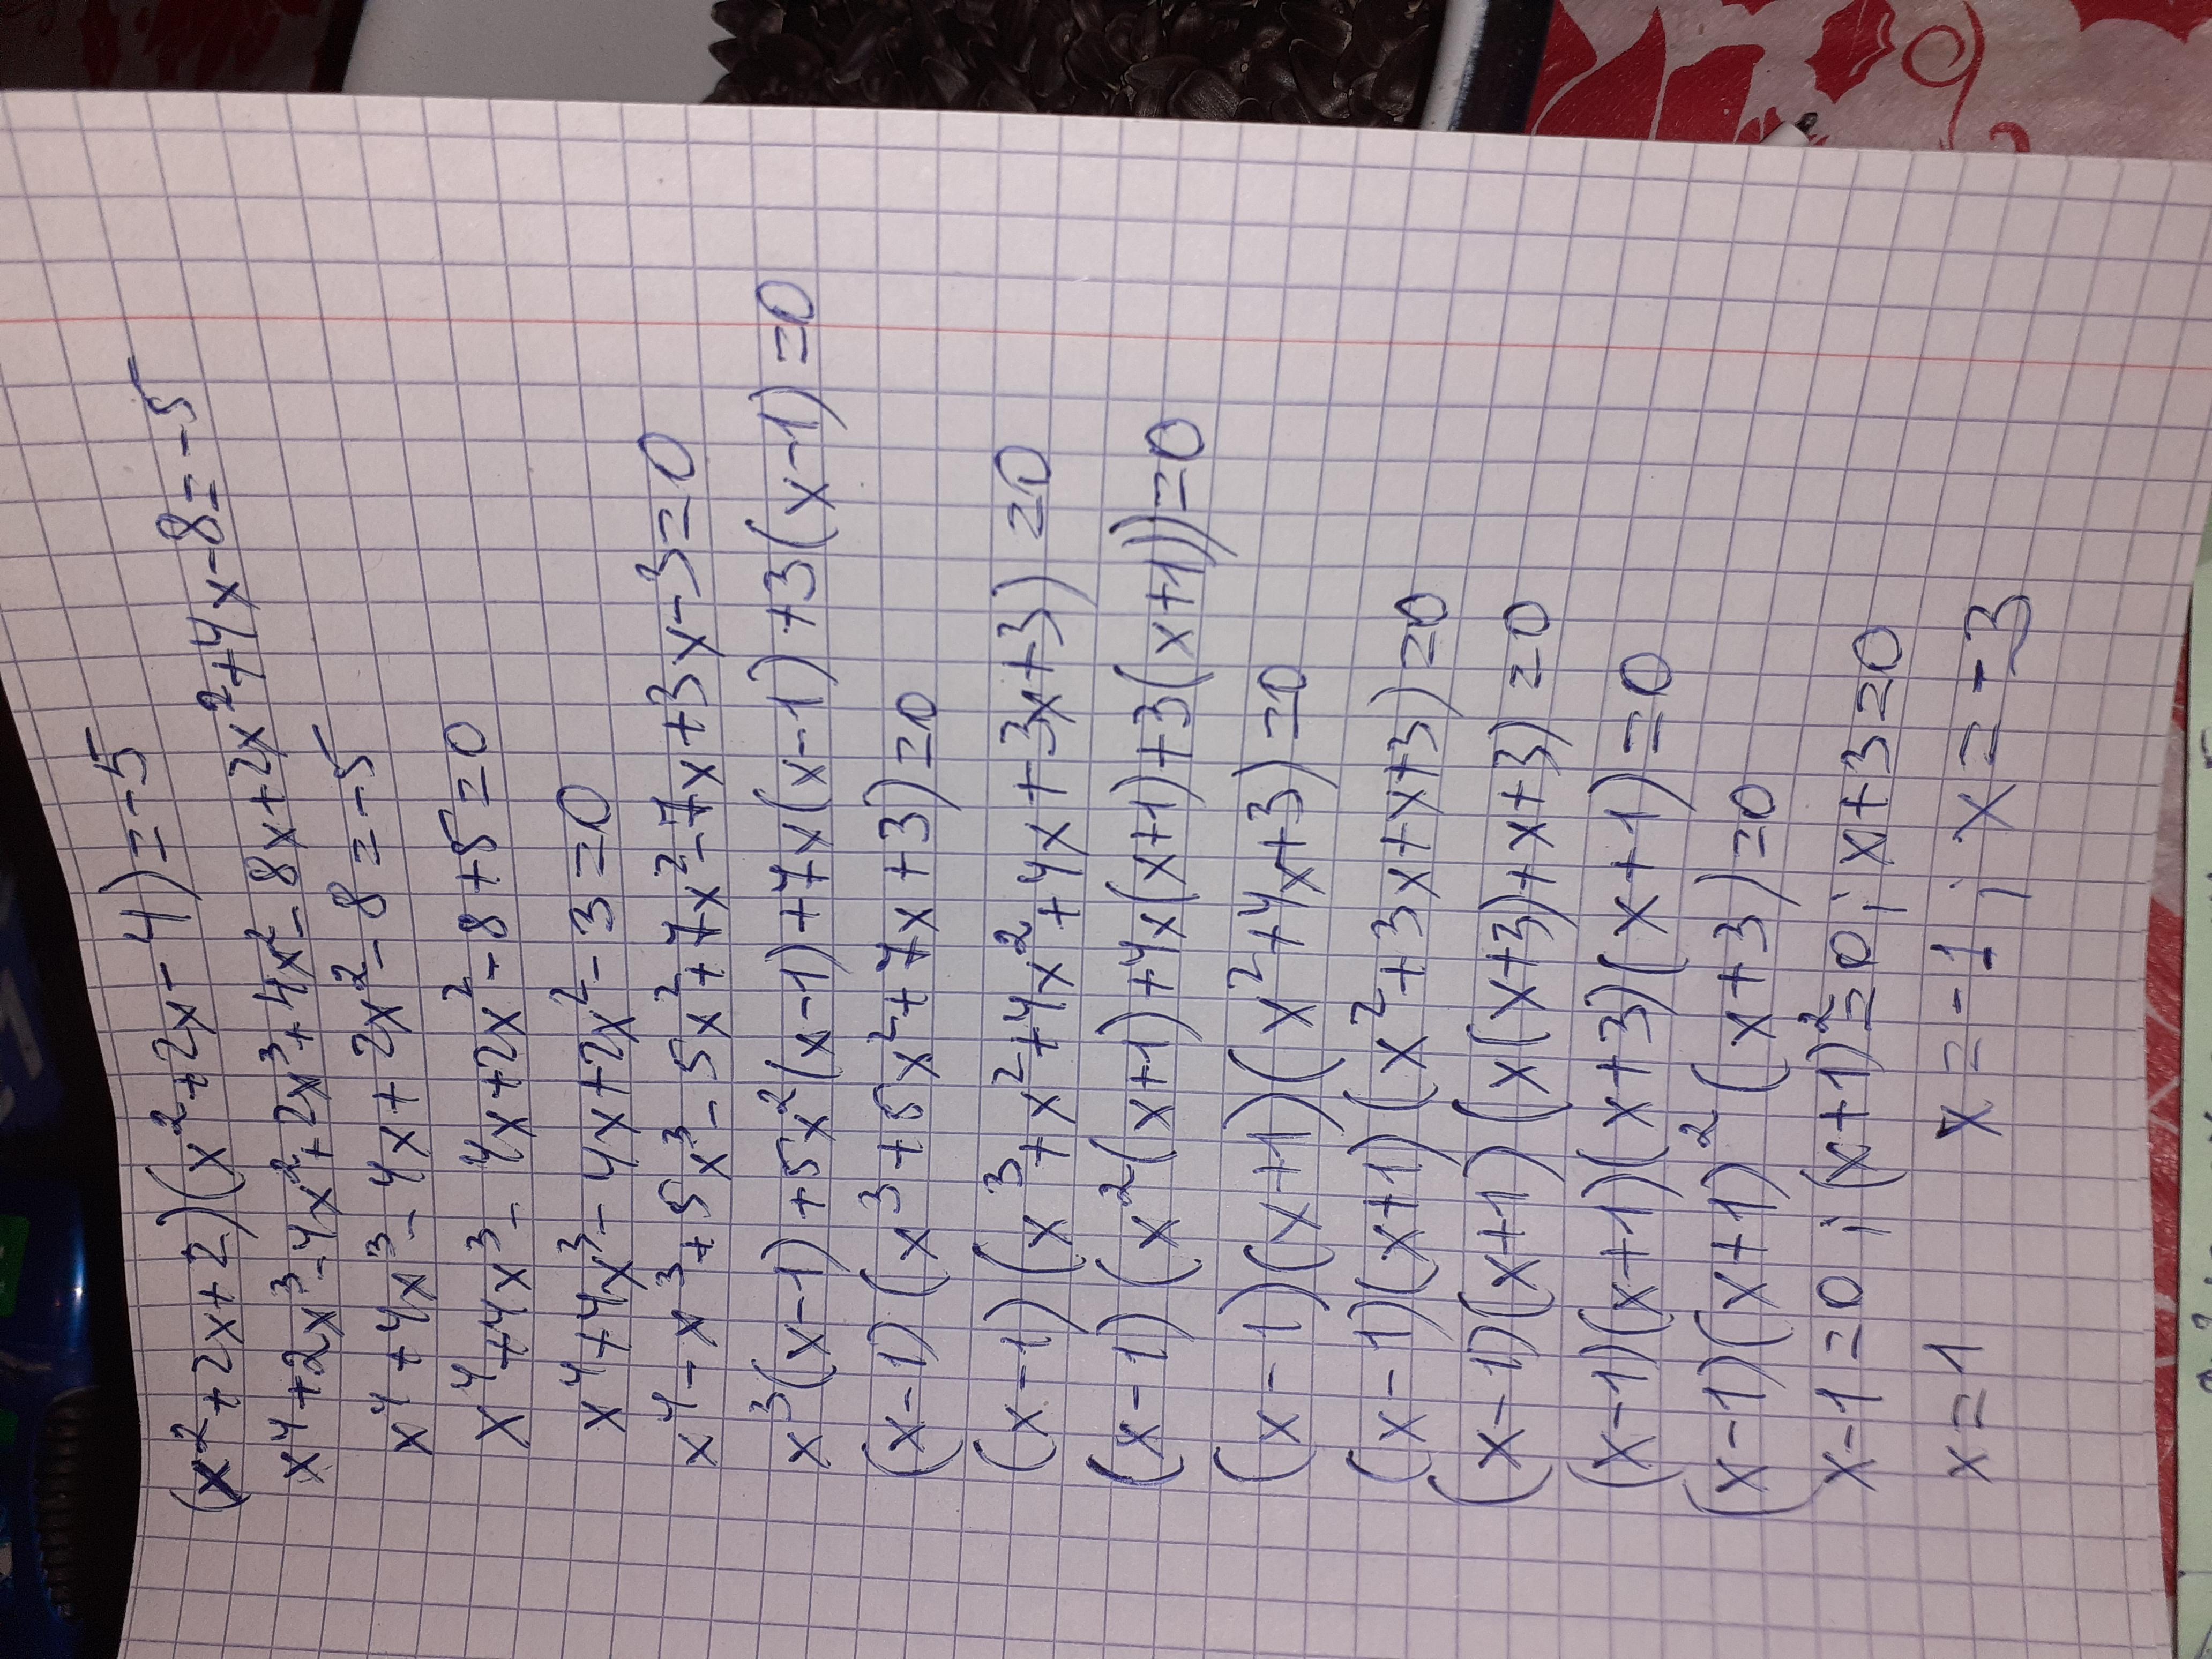 (x²+2x+2)(x²+2x-4)=-5
x⁴+2x³-4x²+2x³+4x²-8x+2x²+4x-8=-5
x⁴+4x³-4x+2x²-8=-5
x⁴+4x³-4x+2x²-8+5=0
x⁴+4x³-4x+2x²-3=0
x⁴-x³+5x³-5x²+7x²-7x+3x-3=0
x³(x-1)+5x²(x-1)+7x(x-1)+3(x-1)=0
(x-1)(x³+5x²+7x+3)=0
(x-1)(x³+x²+4x²+4x+3x+3)=0
(x-1)(x²(x+1)+4x(x+1)+3(x+1))=0
(x-1)(x+1)(x²+4x+3)=0
(x-1)(x+1)(x²+3x+x+3)=0
(x-1)(x+1)(x(x+3)+x+3)=0
(x-1)(x+1)(x+3)(x+1)=0
(x-1)(x+1)²(x+3)=0
x-1=0 ; (x+1)²=0 ; x+3=0
x=1 x=-1 ; x=-3